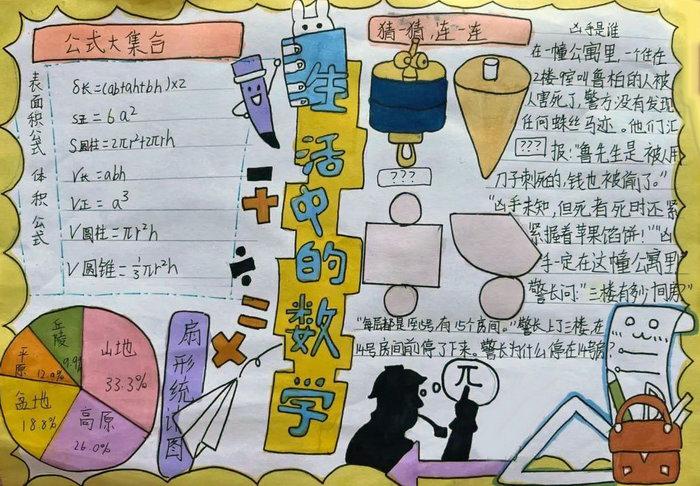 公式大集合
表面积公式
S长=(ab+ah+bh)×2
S正=6a²
S圆柱=2πr²+2πrh
体积公式
V长=abh
V正=a³
V圆柱=πr²h
V圆锥=⅓πr²h
生活中的数学
猜一猜,连一连
???
???
凶手是谁
在一幢公寓里,一个住在
2楼 叫鲁柏的人被
人害死了,警方没有发现
任何蛛丝马迹。他们汇
报:"鲁先生是被人用
刀子刺死的,钱也被偷了。"
"凶手未知,但死者死时还紧
紧握着苹果馅饼!""凶
手一定在这幢公寓里"
警长问:"三楼有多少间房"
"每层都是 15号,有15个房间。"警长上了三楼,在
14号房间前停了下来。警长为什么停在14号房?
丘陵
9.9%
平原
12.0%
盆地
18.8%
高原
26.0%
山地
33.3%
扇形统计图
π